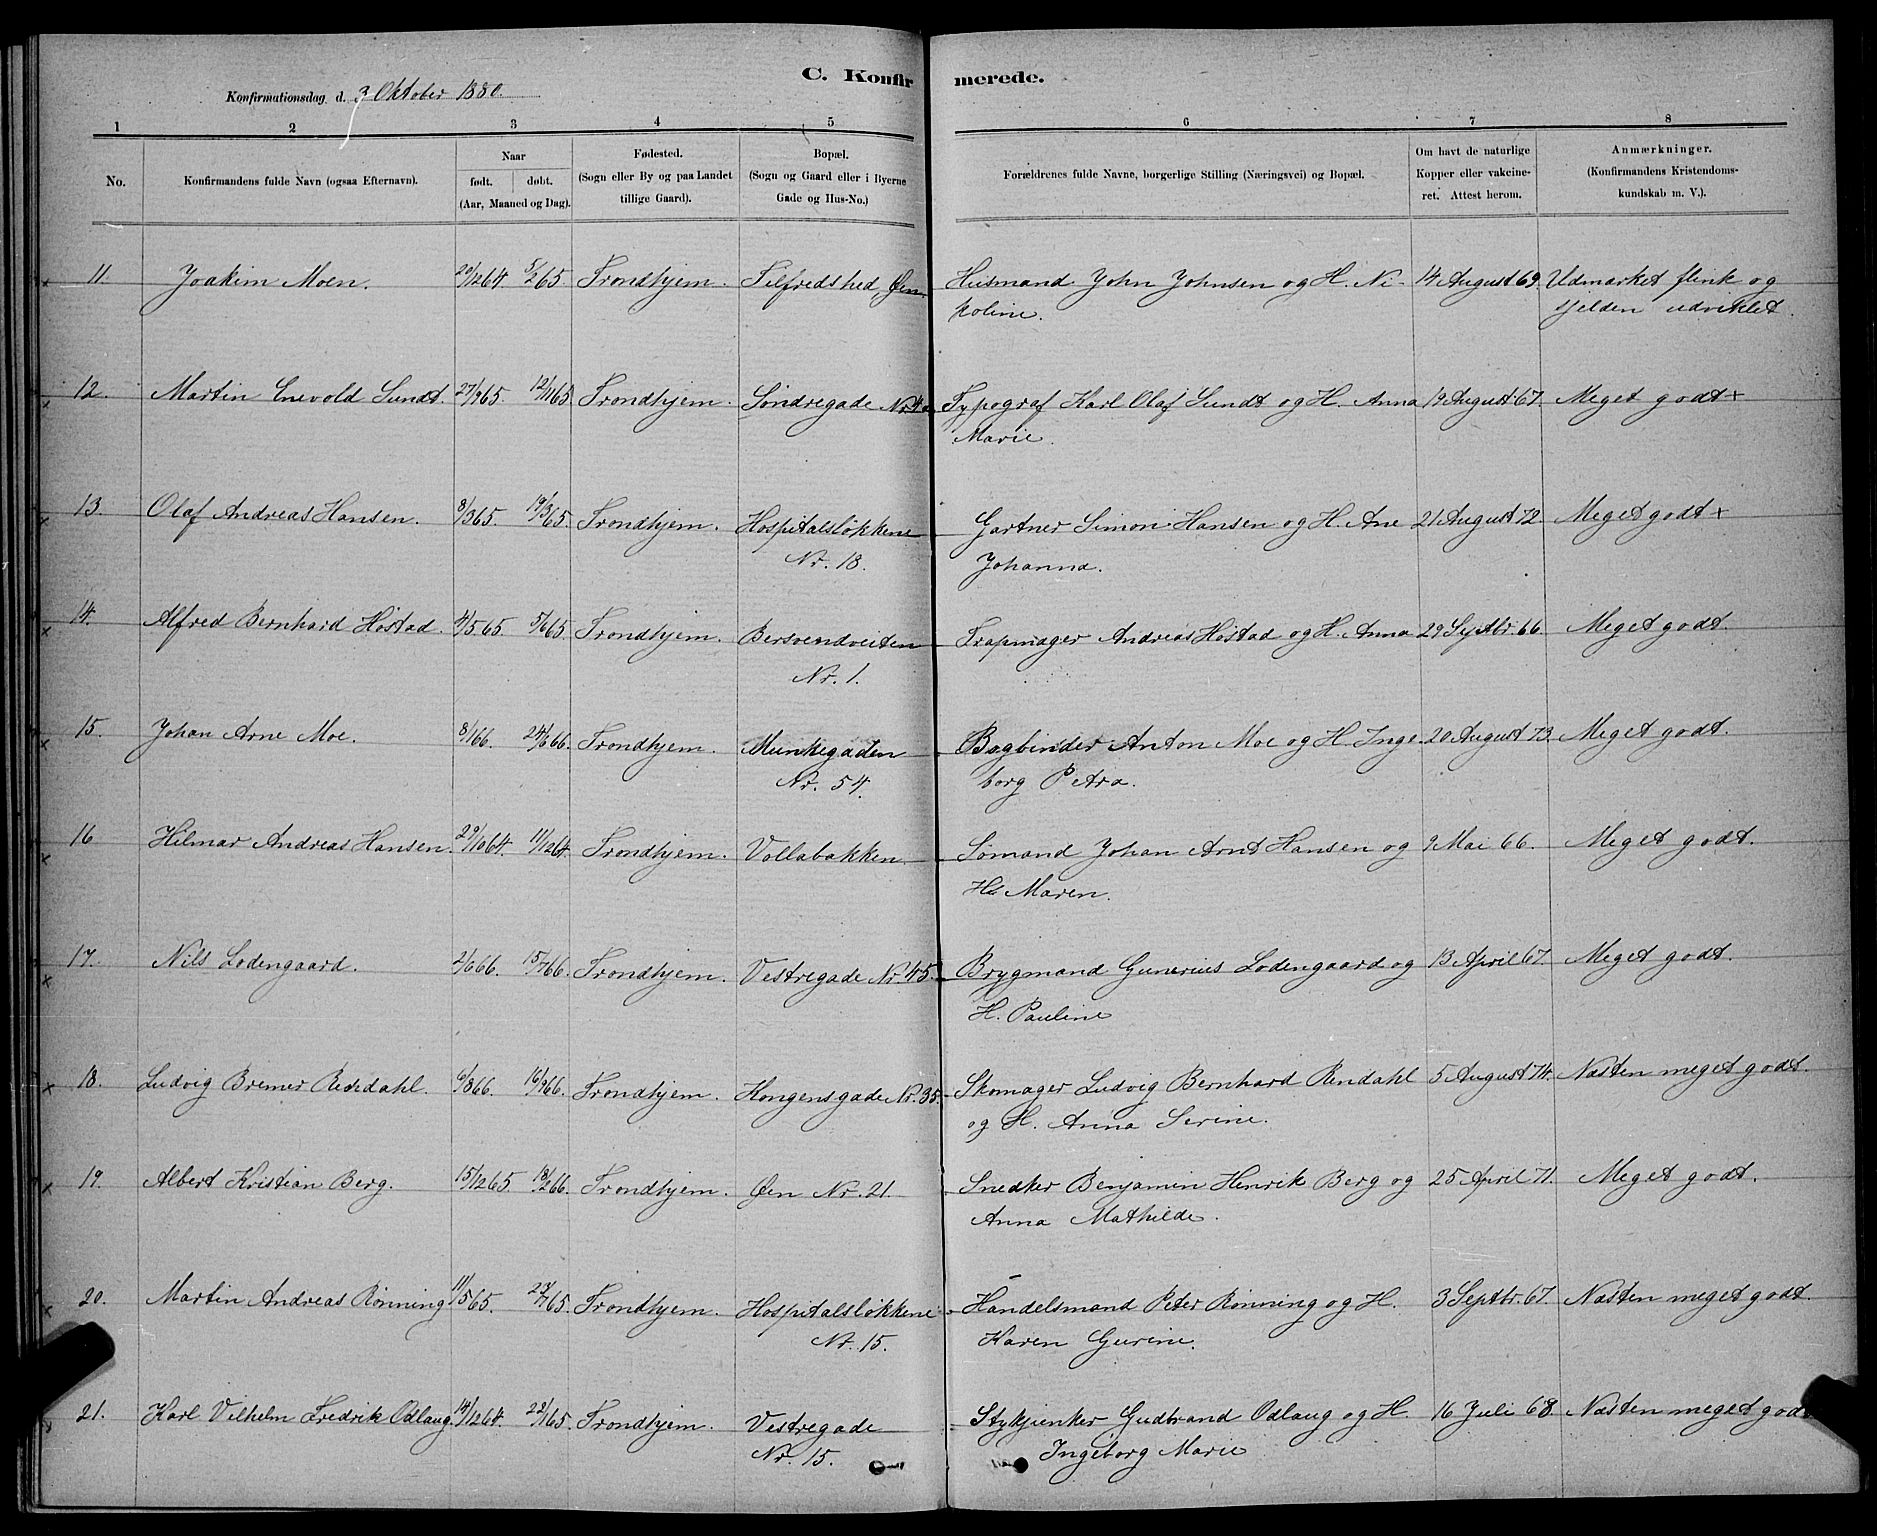 C. Konfirmerede.
Konfirmationsdag d. 3 Oktober 1880.
1 2 3 4 5 6 7 8
No. Konfirmandens fulde Navn (ogsaa Efternavn). Naar født. døbt. (Aar, Maaned og Dag). Fødested. (Sogn eller By og paa Landet tillige Gaard). Bopæl. (Sogn og Gaard eller i Byerne Gade og Hus-No.) Forældrenes fulde Navne, borgerlige Stilling (Næringsvei) og Bopæl. Om havt de naturlige Kopper eller vakcineret. Attest herom. Anmærkninger. (Konfirmandens Kristendomskundskab m. V.).
11. Joakim Moen. 20/12 64. 5/2 65. Trondhjem. Tilfredshed Øen Husmand John Johnsen og H. Ni- 14 August 69. Udmærket flink og
koline. sjelden udviklet.
12. Martin Enevold Sundt. 27/9 65. 12/11 65. Trondhjem. Søndregade Typograf Karl Olaf Sundt og H. Anna 19 August 67. Meget godt +
Marie.
13. Olaf Andreas Hansen. 8/3 65. 19/3 65. Trondhjem. Hospitalsløkkene Gartner Simon Hansen og H. Ane 21 August 72. Meget godt +
Nr. 18. Johanna.
14. Alfred Bernhard Høstad. 4/5 65. 5/6 65. Trondhjem. Bersvendveiten Trapmager Andreas Høstad og H. Anna 29 Septbr. 66. Meget godt.
Nr. 1.
15. Johan Arne Moe. 8/1 66. 24/6 66. Trondhjem. Munkegaden Bogbinder Anton Moe og H. Inge- 20 August 73. Meget godt.
Nr. 54. borg Petra.
16 Hilmar Andreas Hansen. 29/10 64. 11/12 64. Trondhjem. Vollabakken Sømand Johan Arnt Hansen og 9 Mai 66. Meget godt.
H. Maren.
17. Nils Lodengaard. 2/6 66. 15/7 66. Trondhjem. Vestregade Nr. 45. Brygmand Gunerius Lodengaard og 13 April 67. Meget godt.
H. Pauline
18. Ludvig Bremer Rendahl. 6/8 66. 16/9 66. Trondhjem. Kongensgade Nr. 35. Skomager Ludvig Bernhard Rendahl 5 August 74. Næsten meget godt.
og H. Anna Serine.
19. Albert Kristian Berg. 15/12 65. 18/2 66. Trondhjem. Øen Nr. 21 Snedker Benjamin Henrik Berg og 25 April 71. Meget godt.
Anna Mathilde.
20. Martin Andreas Rønning 11/5 65. 23/7 65. Trondhjem. Hospitalsløkkene Handelsmand Peter Rønning og H. 3 Septbr. 67. Næsten meget godt.
Nr. 15. Karen Gurine.
21. Karl Vilhelm Fredrik Odlaug. 14/12 64. 22/1 65. Trondhjem. Vestregade Stykjunker Gudbrand Odlaug og H. 16 Juli 68 Næsten meget godt
Nr. 15. Ingeborg Marie